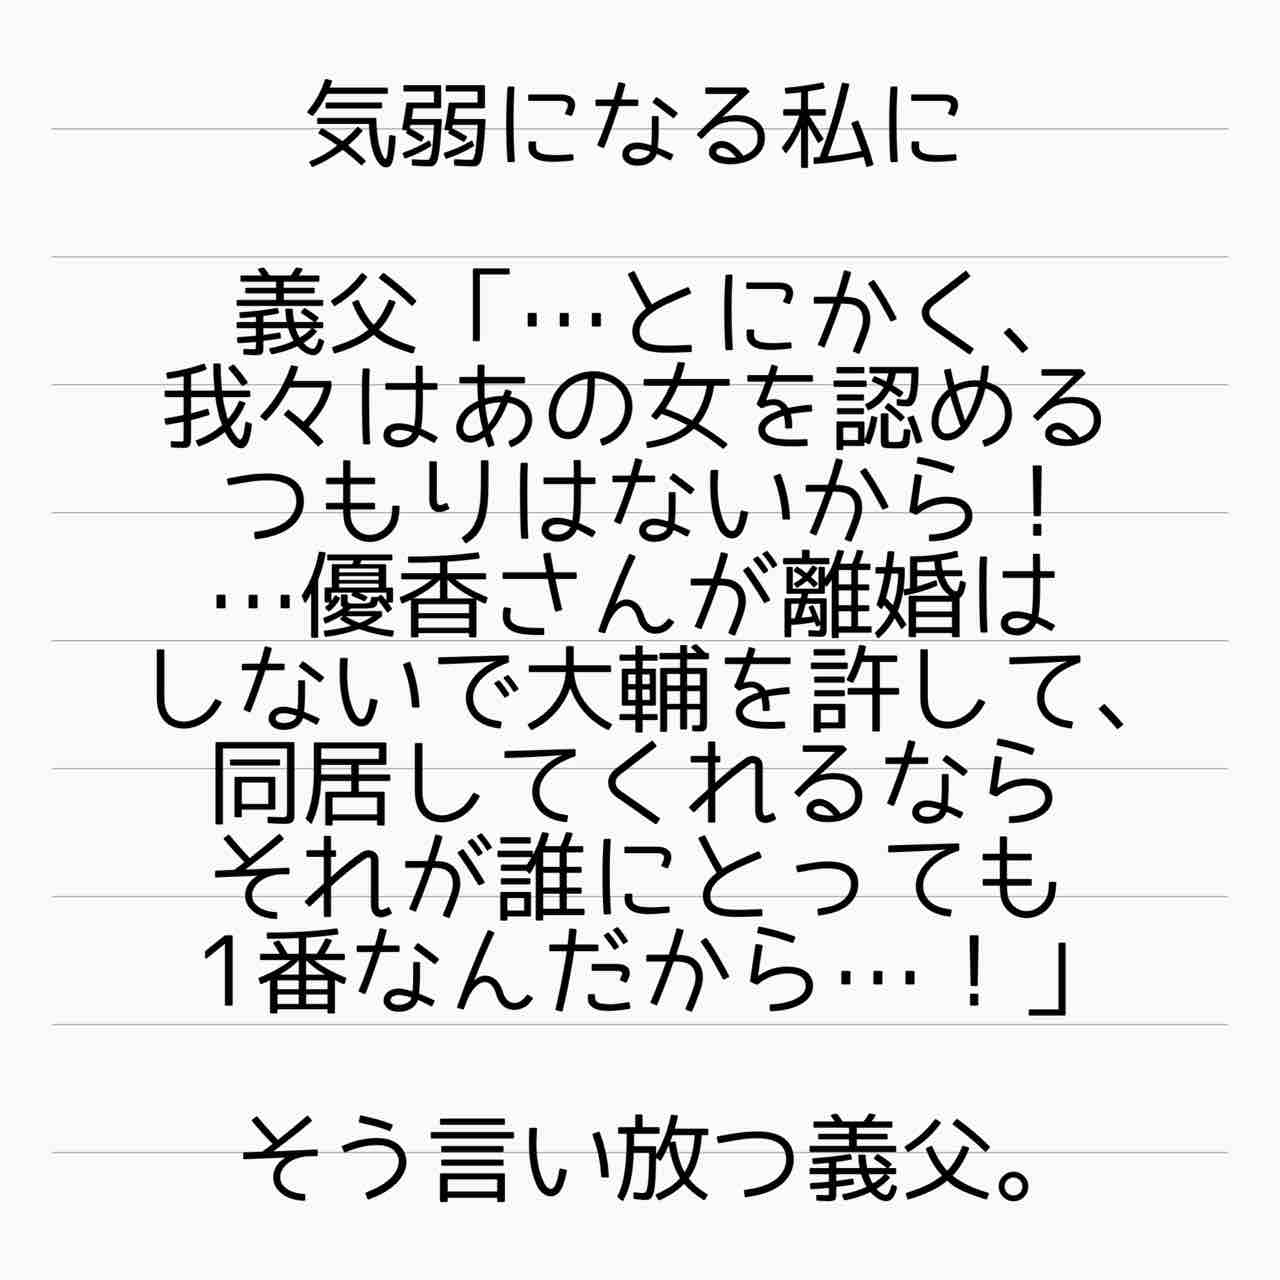 気弱になる私に
義父「…とにかく、
我々はあの女を認める
つもりはないから！
…優香さんが離婚は
しないで大輔を許して、
同居してくれるなら
それが誰にとっても
1番なんだから…！」
そう言い放つ義父。